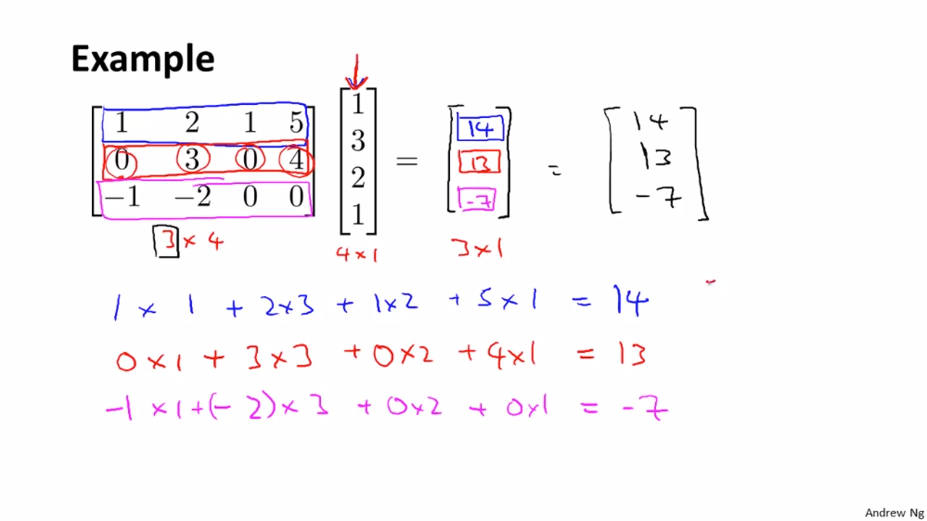 Example
[1 2 1 5; 0 3 0 4; −1 −2 0 0] [1; 3; 2; 1] = [14; 13; -7] = [14; 13; -7]
3 × 4 4 × 1 3 × 1
1 × 1 + 2 × 3 + 1 × 2 + 5 × 1 = 14
0 × 1 + 3 × 3 + 0 × 2 + 4 × 1 = 13
-1 × 1 + (-2) × 3 + 0 × 2 + 0 × 1 = -7
Andrew Ng